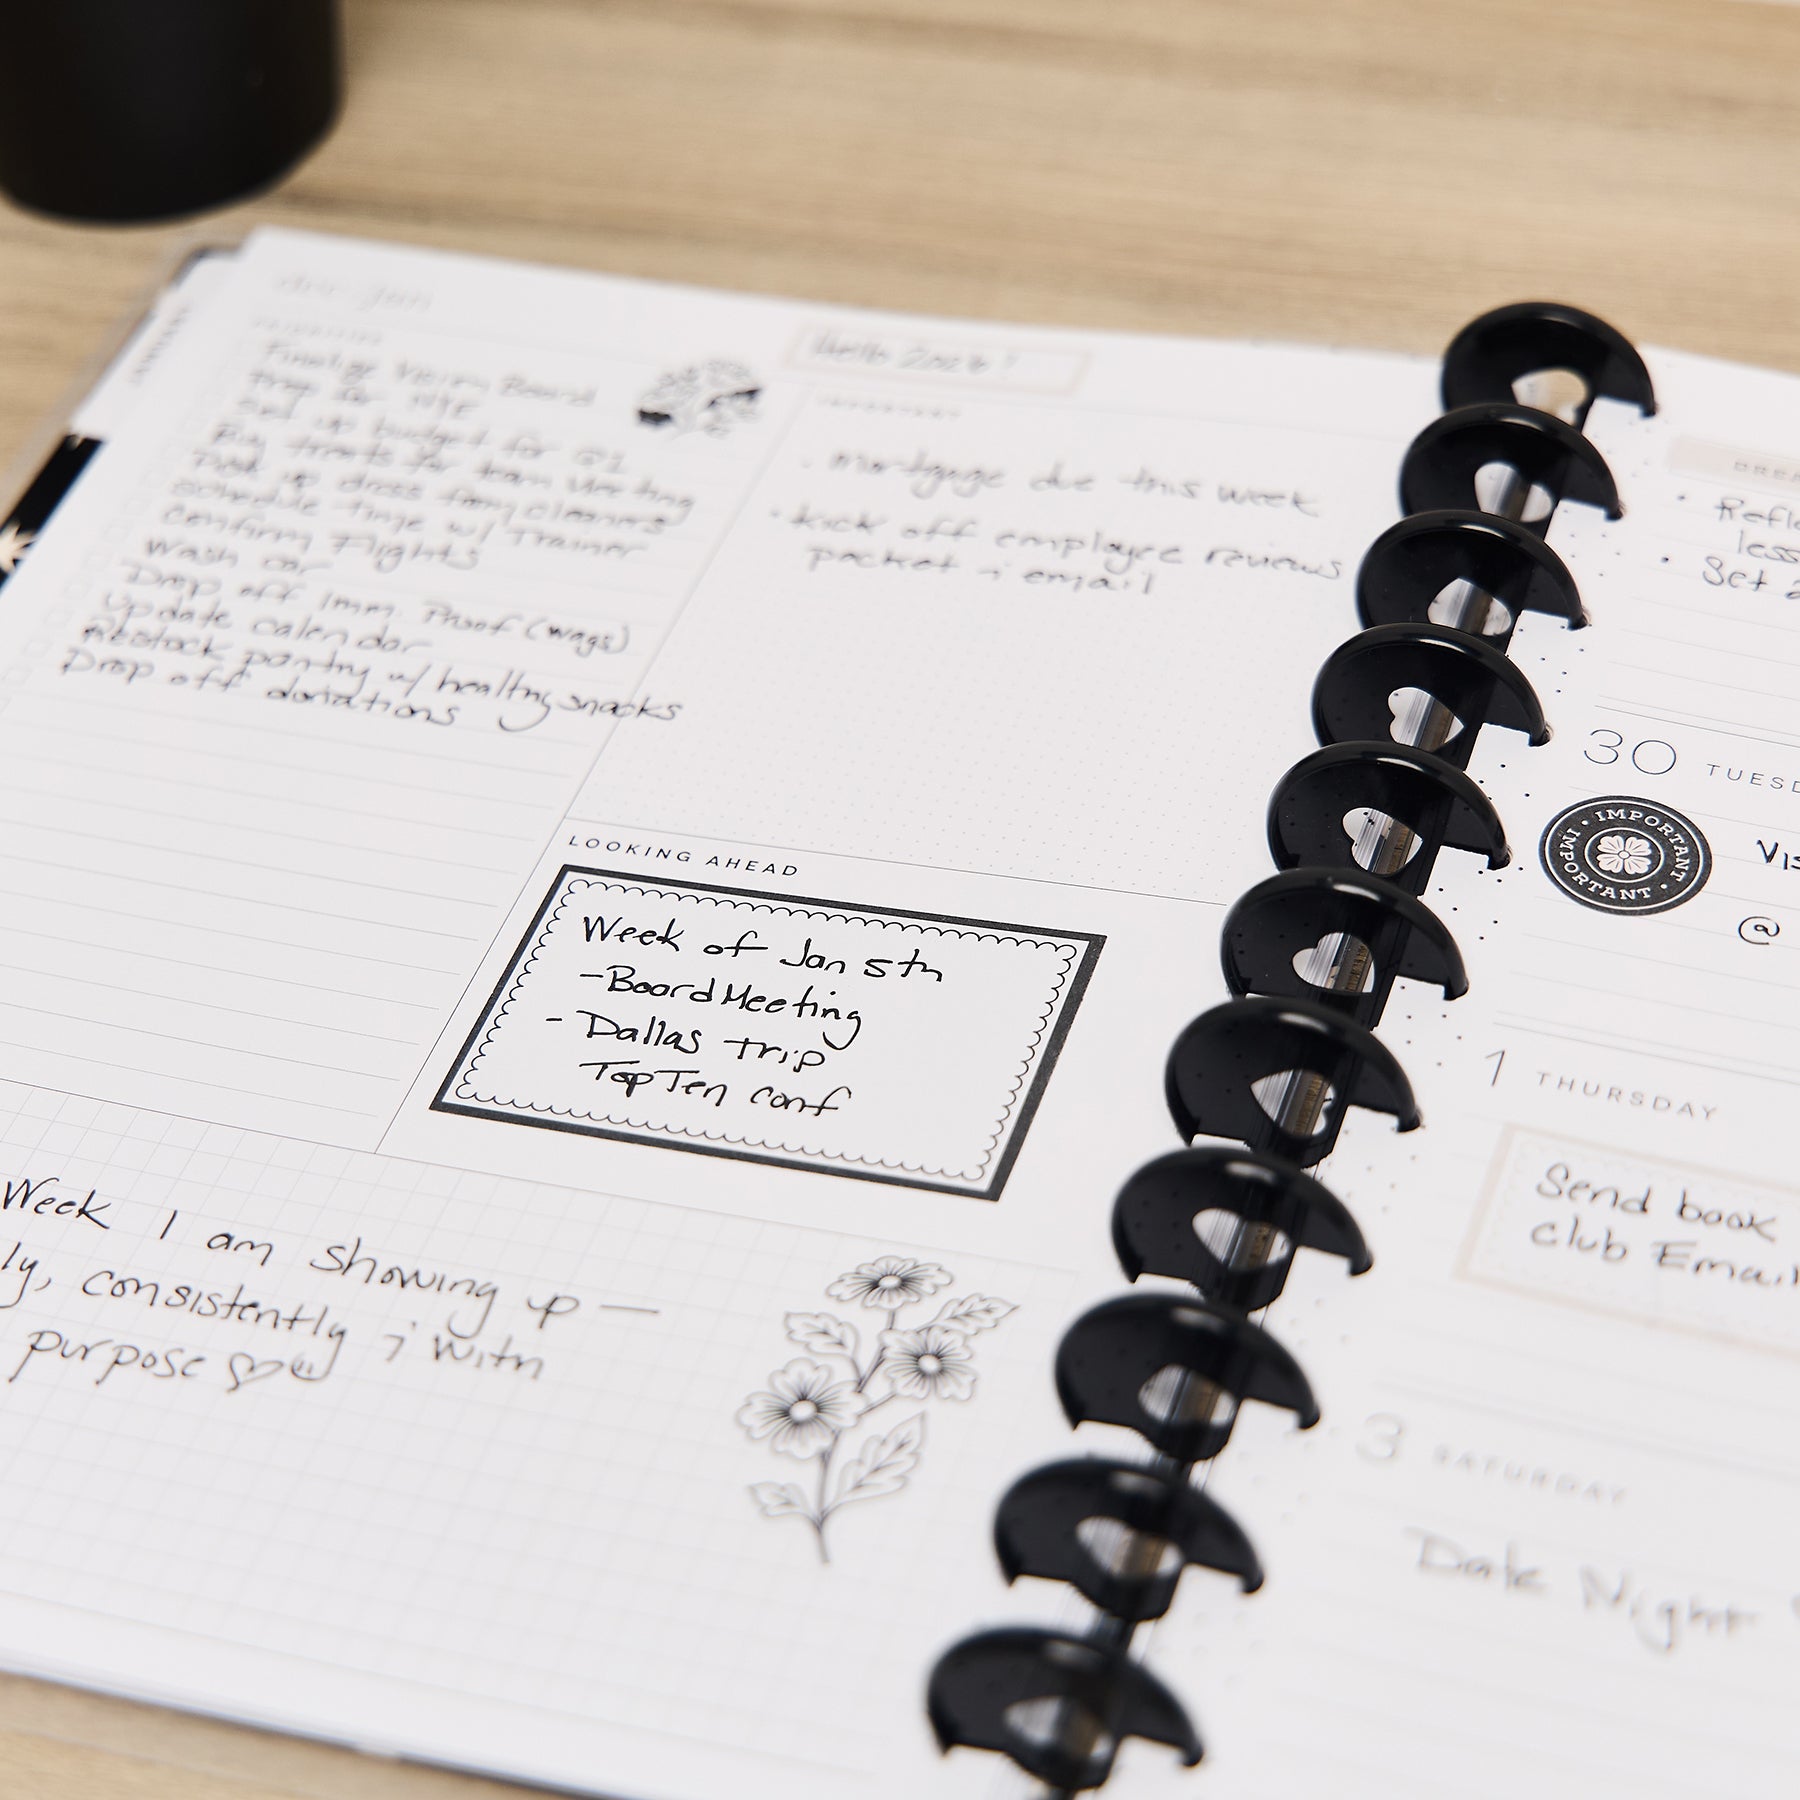 dec-jan
PRIORITIES
Finalize Vision Board
Prep for NYE
Set up budget for Q1
Buy treats for team Meeting
Pick up dress from cleaners
Schedule time w/ Trainer
Confirm Flights
Wash car
Drop off Imm. Proof (wags)
Update calendar
Restock pantry w/ healthy snacks
Drop off donations
Hello 2026!
IMPORTANT
· mortgage due this week
· kick off employee reviews
packet & email
LOOKING AHEAD
Week of Jan 5th
-Board Meeting
- Dallas Trip
Top Ten conf
Week I am showing up —
ly, consistently & with
purpose
Refle
less
Set
30 TUESD
IMPORTANT · IMPORTANT ·
Vis
@
1 THURSDAY
Send book
club Email
3 SATURDAY
Date Night